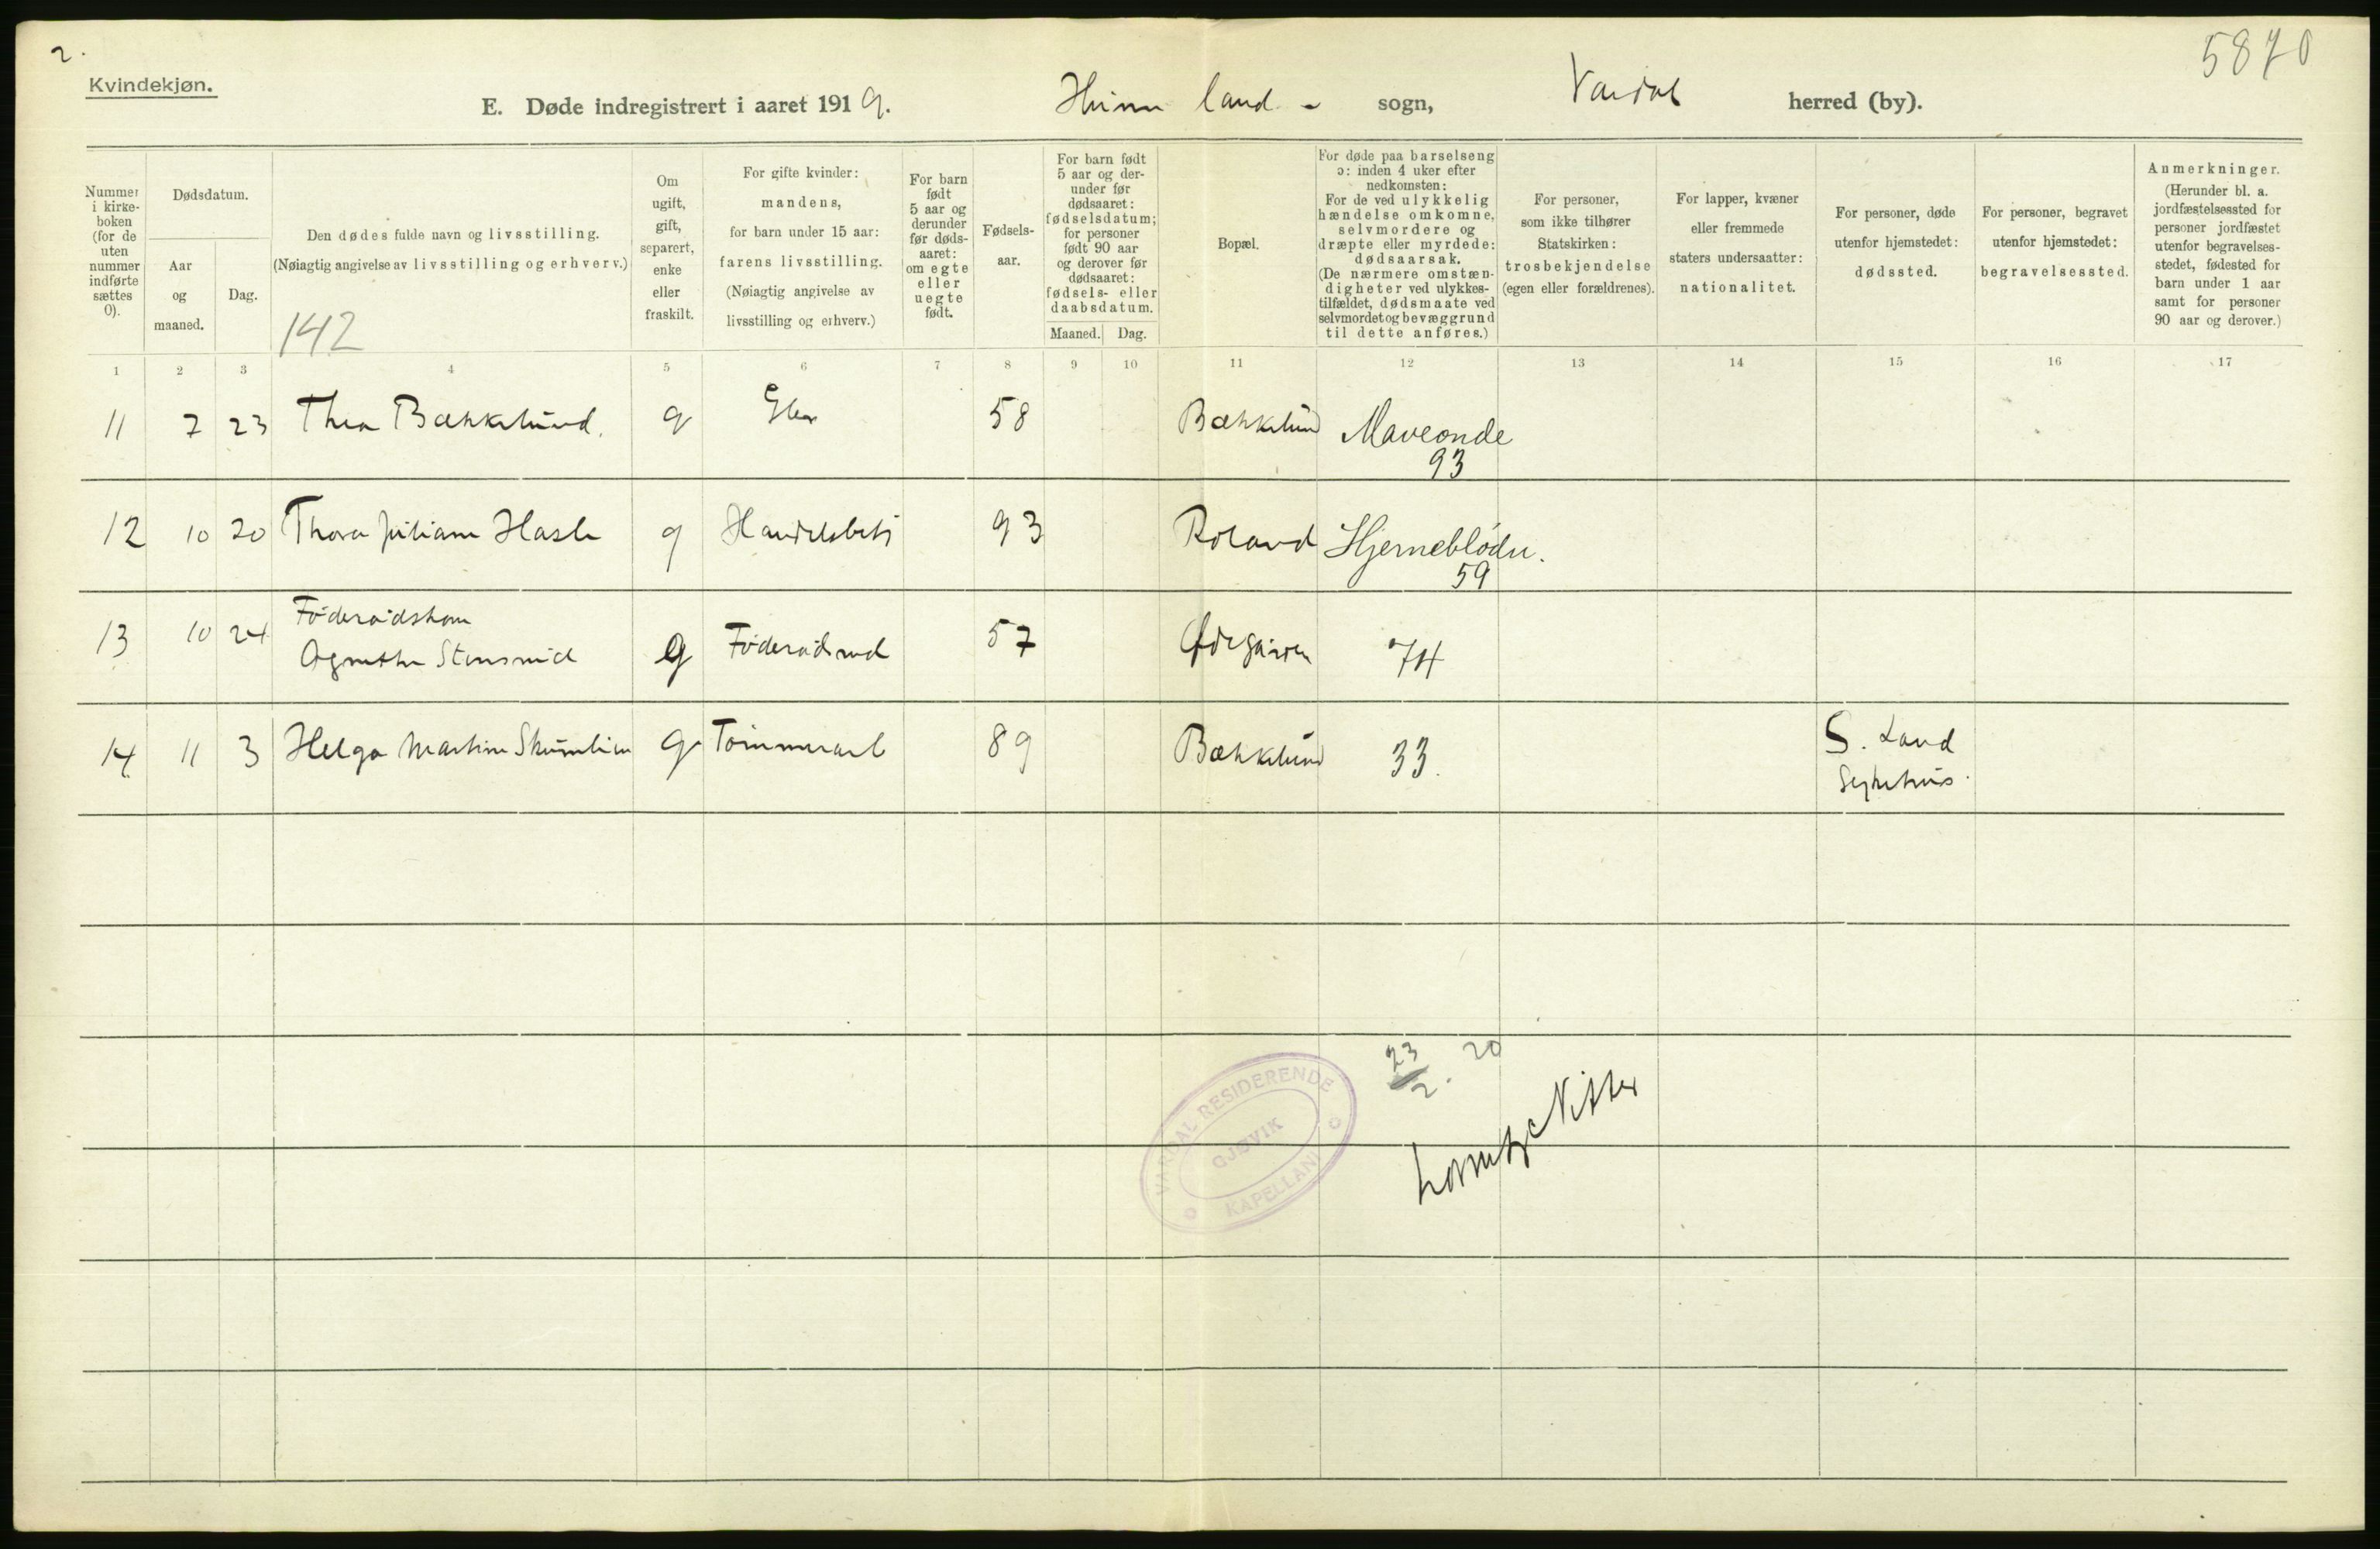 2.
5870
Kvindekjøn.
E. Døde indregistrert i aaret 1919. Hunn land - sogn, Vardal herred (by).
Nummer i kirke-boken (for de uten nummer indførte sættes 0).
Dødsdatum.
Aar og maaned.
Dag.
Den dødes fulde navn og livsstilling.
(Nøiagtig angivelse av livsstilling og erhverv.)
142
Om ugift, gift, separert, enke eller fraskilt.
For gifte kvinder:
mandens,
for barn under 15 aar:
farens livsstilling.
(Nøiagtig angivelse av
livsstilling og erhverv.)
For barn født 5 aar og derunder før døds-aaret: om egte eller uegte født.
Fødsels-aar.
For barn født 5 aar og der-under før dødsaaret: fødselsdatum; for personer født 90 aar og derover før dødsaaret: fødsels- eller daabsdatum.
Maaned. Dag.
Bopæl.
For døde paa barselseng
ɔ: inden 4 uker efter
nedkomsten:
For de ved ulykkelig
hændelse omkomne,
selvmordere og
dræpte eller myrdede:
dødsaarsak.
(De nærmere omstæn-
digheter ved ulykkes-
tilfældet, dødsmaate ved
selvmordet og bevæggrund
til dette anføres.)
For personer,
som ikke tilhører
Statskirken:
trosbekjendelse
(egen eller forældrenes).
For lapper, kvæner
eller fremmede
staters undersaatter:
nationalitet.
For personer, døde
utenfor hjemstedet:
dødssted.
For personer, begravet
utenfor hjemstedet:
begravelsessted.
Anmerkninger.
(Herunder bl. a.
jordfæstelsessted for
personer jordfæstet
utenfor begravelses-
stedet, fødested for
barn under 1 aar
samt for personer
90 aar og derover.)
1 2 3 4 5 6 7 8 9 10 11 12 13 14 15 16 17
11 7 23 Thea Bækkelund. g 58 Bækkelund Maveonde
93
12 10 20 Thora Juliane Hasle g Handelsbetj 93 Roland Hjerneblødn.
59
13 10 24 Føderådskone
Agnethe Stensrud g Føderådsmd 57 Ødegården 74
14 11 3 Helga Martine Skumlien g Tømmerarb 89 Bækkelund 33. S. Land
Sykehus.
23/2. 20
VARDAL RESIDERENDE
GJØVIK
KAPELLANI
Lorentz Nitter